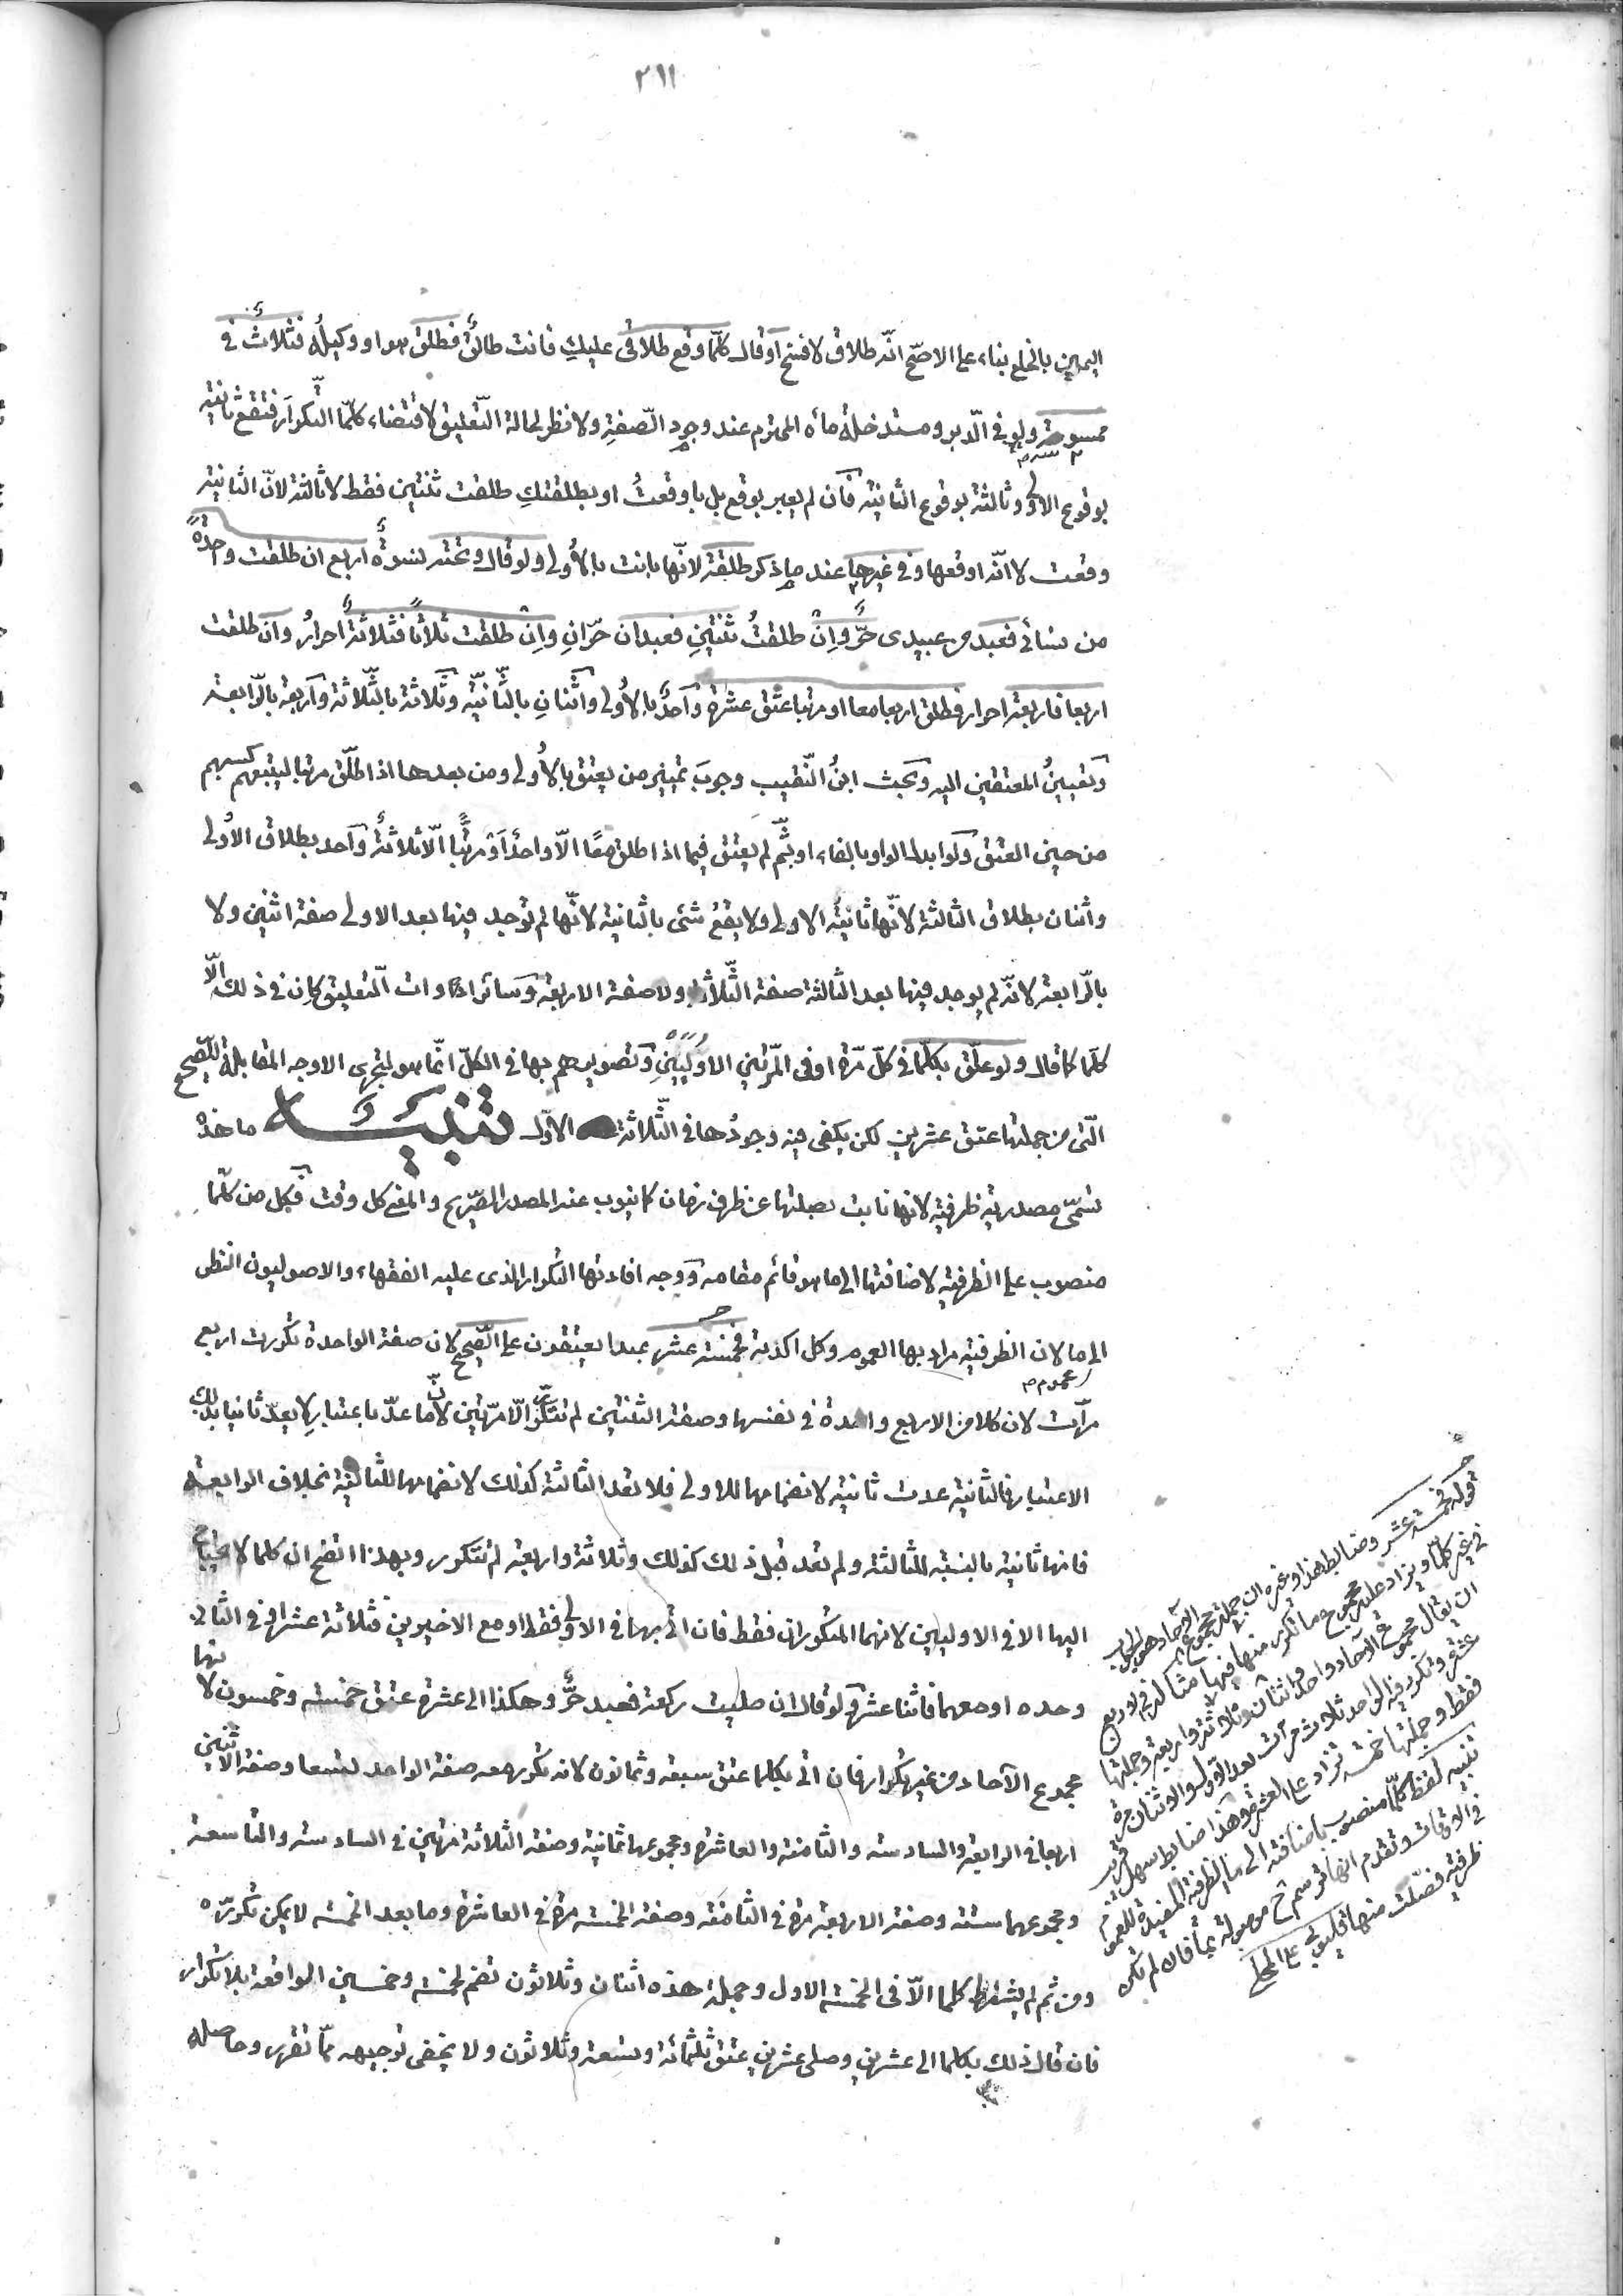 ٢١١
اليمين بالخلع بناء على الاصح انّه طلاق لا فسخ او قال كلّما وقع طلاقى عليكِ فانت طالقٌ فطلق هو او وكيلُه فثلاثٌ فى
ممسوسة ولو فى الدّبر ومستدخلة مائه المحترم عند وجود الصّفةِ ولا نظر لحالة التّعليق لاقتضاء كلّما التّكرارَ فتقعُ ثانيته
بوقوع الاولى وثالثة بوقوع الثانية فان لم يعبر بوقع بل باوقعتُ او بطلقتكِ طلقت ثنتين فقط لا ثالثة لانّ الثانية
وقعت لا انّه اوقعها وفى غيرها عند ما ذكر طلقة لانّها بانت بالأولى ولو قال وتحته نسوةٌ اربع ان طلقت واحدةً
من نسائى فعبد من عبيدى حرٌّ وانْ طلقتُ ثنتينِ فعبدان حرّانِ وانْ طلقت ثلاثًا فثلاثةٌ احرارٌ وان طلقت
اربعا فاربعة احرار فطلق اربعا معا او مرتبا عتق عشرة واحدٌ بالأولى واثنانِ بالثّانيّة وثلاثة بالثّلاثة واربعة بالرّابعة
وتعيينُ المعتقين اليه وبحث ابنُ النّقيب وجوبَ تمييز من يعتق بالأولى ومن بعدها اذا طلّق مرتبا ليتبعهم كسبهم
من حين العتق ولو ابدل الواو بالفاء او بثُمّ لم يعتق فيما اذا طلق معًا الّا واحدٌ او مرتّبًا الّا ثلاثةٌ واحد بطلاق الأولى
واثنان بطلاق الثالثة لانّها ثانيةُ الاولى ولا يقعُ شئى بالثانية لانّها لم توجد فيها بعد الاولى صفة اثنين ولا
بالرّابعة لانّه لم يوجد فيها بعد الثالثة صفة الثّلاثة ولا صفة الاربعة وسائر ادوات التّعليق كان فى ذلك الّا
كلّما كما قال ولو علّق بكلّما فى كلّ مرّة او فى المرّتين الاوليين وتصويرهم بها فى الكلّ انّما هو ليجرى الاوجه المقابلة للصّحيح
الّتى من جملتها عتق عشرين لكن يكفى فيه وجودُها فى الثّلاثة الاوّل تنبيه ما هذه
تسمّى مصدريّة ظرفيّة لانها نابت بصلتها عن ظرف زمان كما ينوب عنه المصدر الصّريح والمعنى كل وقت فكل من كلّما
منصوب على الظرفيّة لاضافتها الى ما هو قائم مقامه ووجه افادتها التكرار الذى عليه الفقهاء والاصوليون النظر
الى ما لان الظرفيّة مراد بها العموم وكل اكدته فخمسة عشر عبدا يعتقون على الصّحيح لان صفة الواحدة تكررت اربع
مرّات لان كلا من الاربع واحدة فى نفسها وصفة الثنتين لم تتكرّر الّا مرّتين لانّ ما عدّ باعتبار لا يعدّ ثانيا بذلك
الاعتبار فالثانية عدت ثانية لانضمامها للاولى فلا تعد الثالثة كذلك لانضمامها للثانية بخلاف الرابعة
فانها ثانية بالنسبة للثالثة ولم تعد قبل ذلك كذلك وثلاثة واربعة لم تتكرر وبهذا اتضح ان كلما لا يحتاج
اليها الا فى الاوليين لانهما المتكرران فقط فان اتى بها فى الاولى فقط او مع الاخيرين فثلاثة عشر او فى الثانى
وحده او معهما فاثنا عشر ولو قال ان صليت ركعة فعبد حرٌّ وهكذا الى عشرة عتق خمسة وخمسون لانها
مجموع الآحاد من غير تكرار فان اتى بكلما عتق سبعة وثمانون لانه تكرر معه صفة الواحد تسعا وصفة الاثنين
اربعا فى الرابعة والسادسة والثامنة والعاشرة ومجموعها ثمانية وصفة الثلاثة مرتين فى السادسة والتاسعة
ومجموعهما ستة وصفة الاربعة مرة فى الثامنة وصفة الخمسة مرة فى العاشرة وما بعد الخمسة لا يمكن تكرّره
ومن ثم لم يشترط كلما الّا فى الخمسة الاول وجملة هذه اثنان وثلاثون تضم لخمسة وخمسين الواقعة بلا تكرار
فان قال ذلك بكلما الى عشرين وصلى عشرين عتق ثلثمائة وتسعة وثلاثون ولا يخفى توجيهه ممّا تقرر وحاصله
قوله فخمسة عشر وضابط هذا وغيره ان جملة مجموع الآحاد هو الجواب
فى غير كلّما ويزاد عليه مجموع ما تكرر منها فيها مثاله فى الاربع
ان يقال مجموع الآحاد واحد واثنان وثلاثة واربعة وجملتها
عشرة وتكرر فيه الواحد ثلاث مرات بعد الاول والاثنان مرة
فقط وجملتها خمسة تزاد على العشرة وهذا ضابط سهل
تنبيه لفظ كلّما منصوب باضافته الى ما الظرفية المفيدة للعموم
فى الاوقات وتقدم انها ترسم ح موصولة بما فان لم تكن
ظرفية فصلت منها قليوبى على المحلى